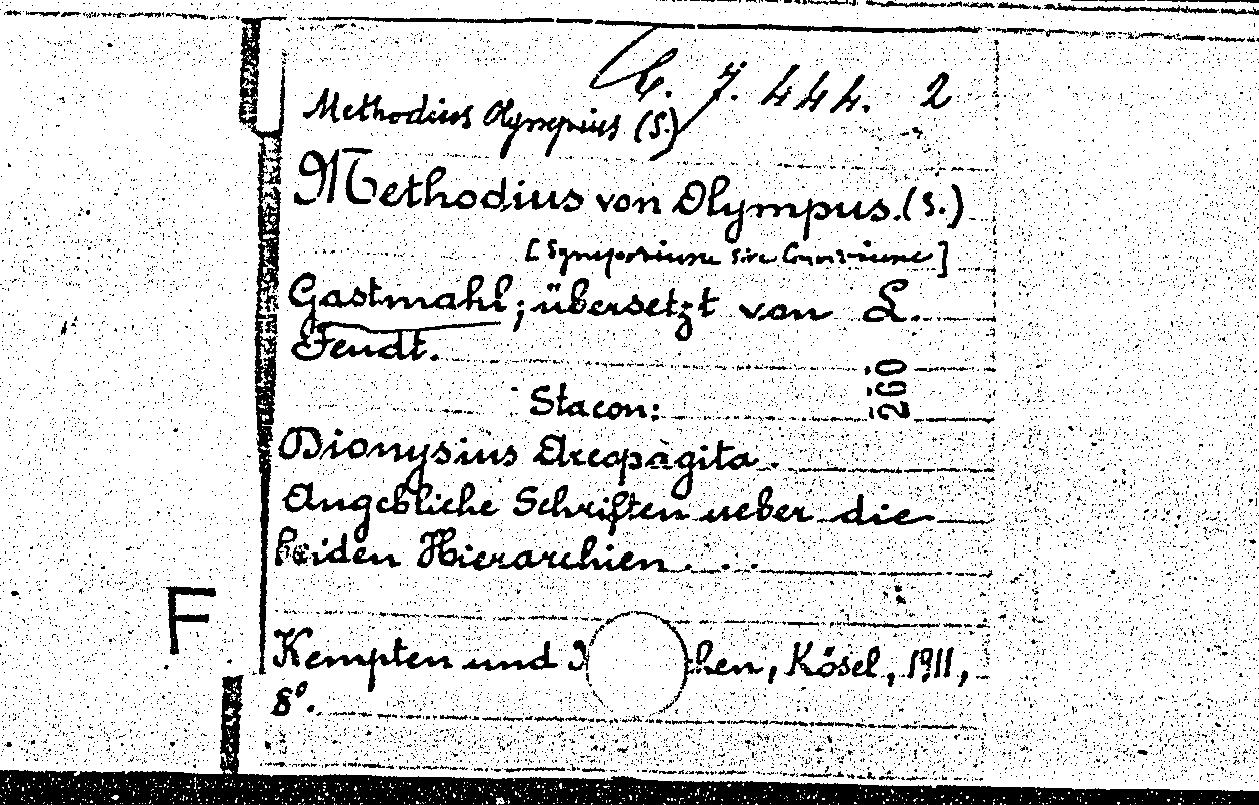 6. 7. 444. 2
Methodius Olympius (S.)
Methodius von Olympus. (S.)
[Symposium sive Convivium]
Gastmahl; übersetzt von L.
Fendt.
260
Sta con:
Dionysius Areopagita.
Angebliche Schriften ueber die
beiden Hierarchien . . .
F
Kempten und chen, Kösel, 1911,
8°.